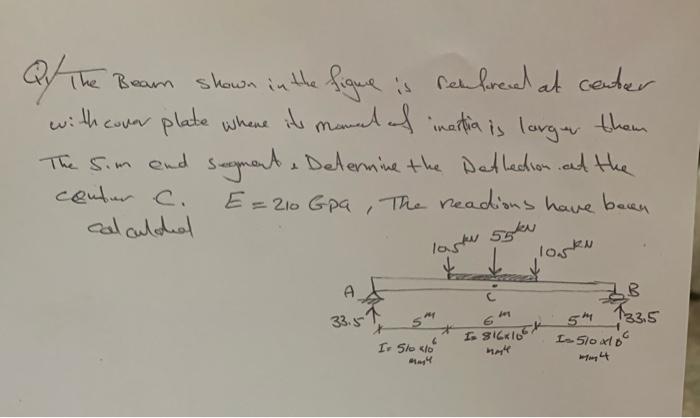 Q/ The Beam shown in the figure is reinforced at center
with cover plate where its moment of inertia is larger than
The 5.m end segment. Determine the Deflection at the
center C. E = 210 GPa, The reactions have been
calculated
10.5 kN 55 kN 10.5 kN
A C B
33.5 5 m 6 m 5 m 33.5
I= 510 x10⁶ mm4 I= 816x10⁶ mm4 I= 510 x10⁶ mm4